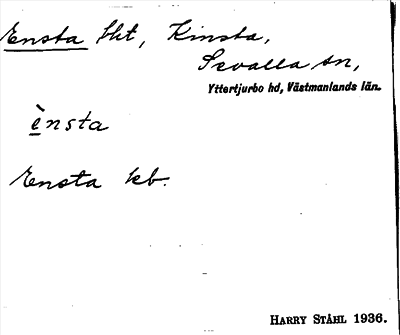 Ensta hlt, Kinsta,
Sevalla sn,
Yttertjurbo hd, Västmanlands län.
è̱nsta
Ensta kb.
HARRY STÅHL 1936.